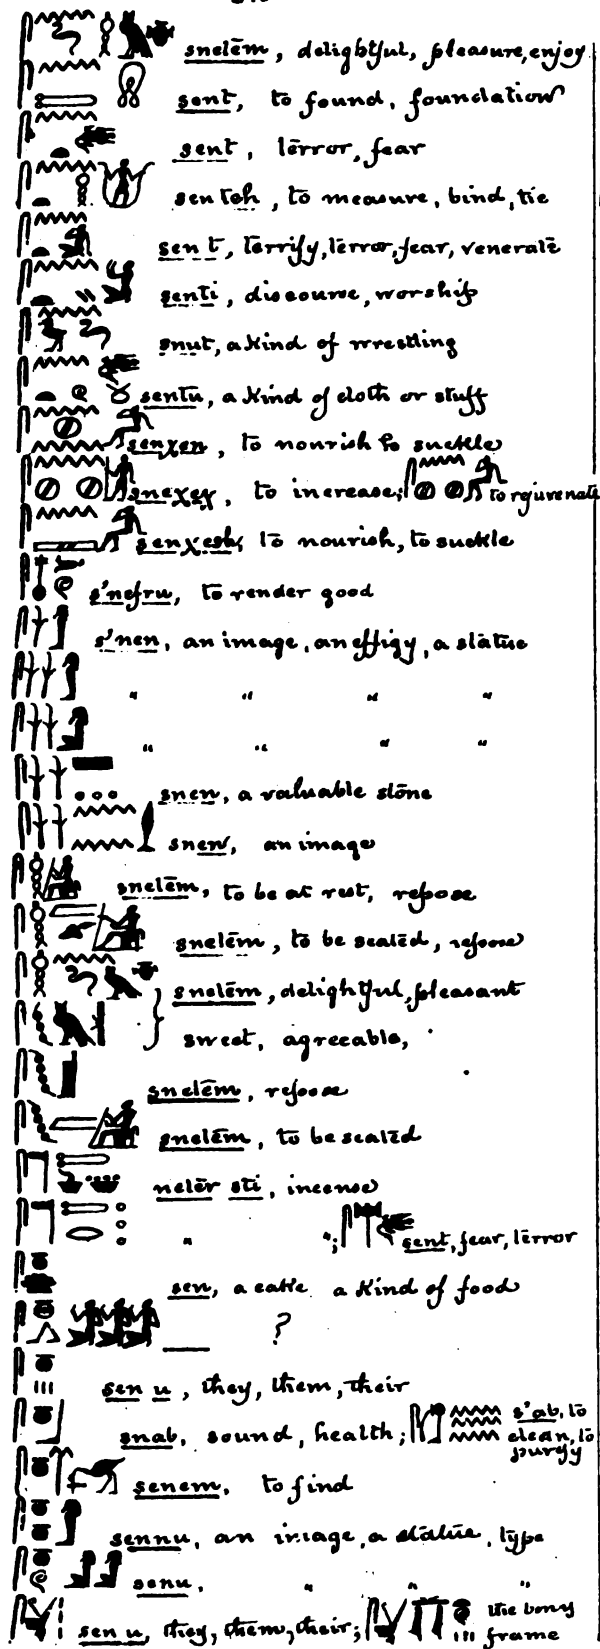 snetēm, delightful, pleasure, enjoy
sent, to found, foundation
sent, terror, fear
sen teh, to measure, bind, tie
sen t, terrify, terror, fear, venerate
senti, discourse, worship
snut, a kind of wrestling
sentu, a kind of cloth or stuff
senχen, to nourish to suckle
sneχeχ, to increase; to rejuvenate
senχesh, to nourish, to suckle
s'nefru, to render good
s'nen, an image, an effigy, a statue
" " " "
" " " "
snen, a valuable stone
snen, an image
snetēm, to be at rest, repose
snetēm, to be seated, repose
snetēm, delightful, pleasant
sweet, agreeable,
snetēm, repose
snetēm, to be seated
netēr sti, incense
" "; sent, fear, terror
sen, a cake a kind of food
?
sen u, they, them, their
snab, sound, health; s'ab, to
clean, to
purify
senem, to find
sennu, an image, a statue, type
senu, " " "
sen u, they, them, their; the bony
frame